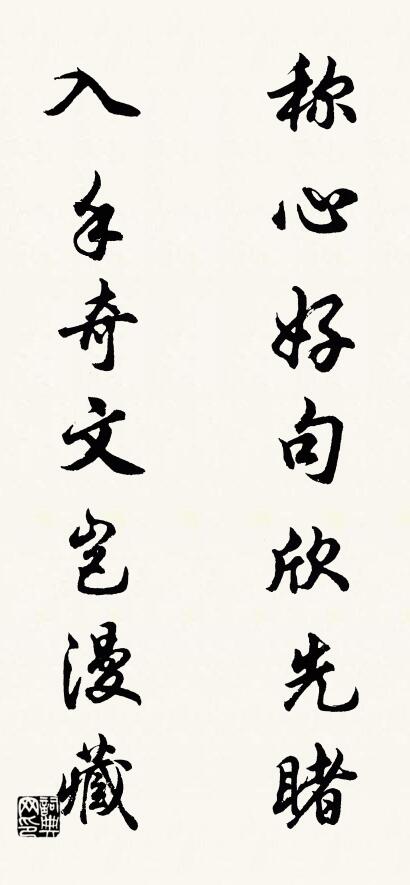 称心好句欣先睹
入手奇文岂漫藏
词典网印